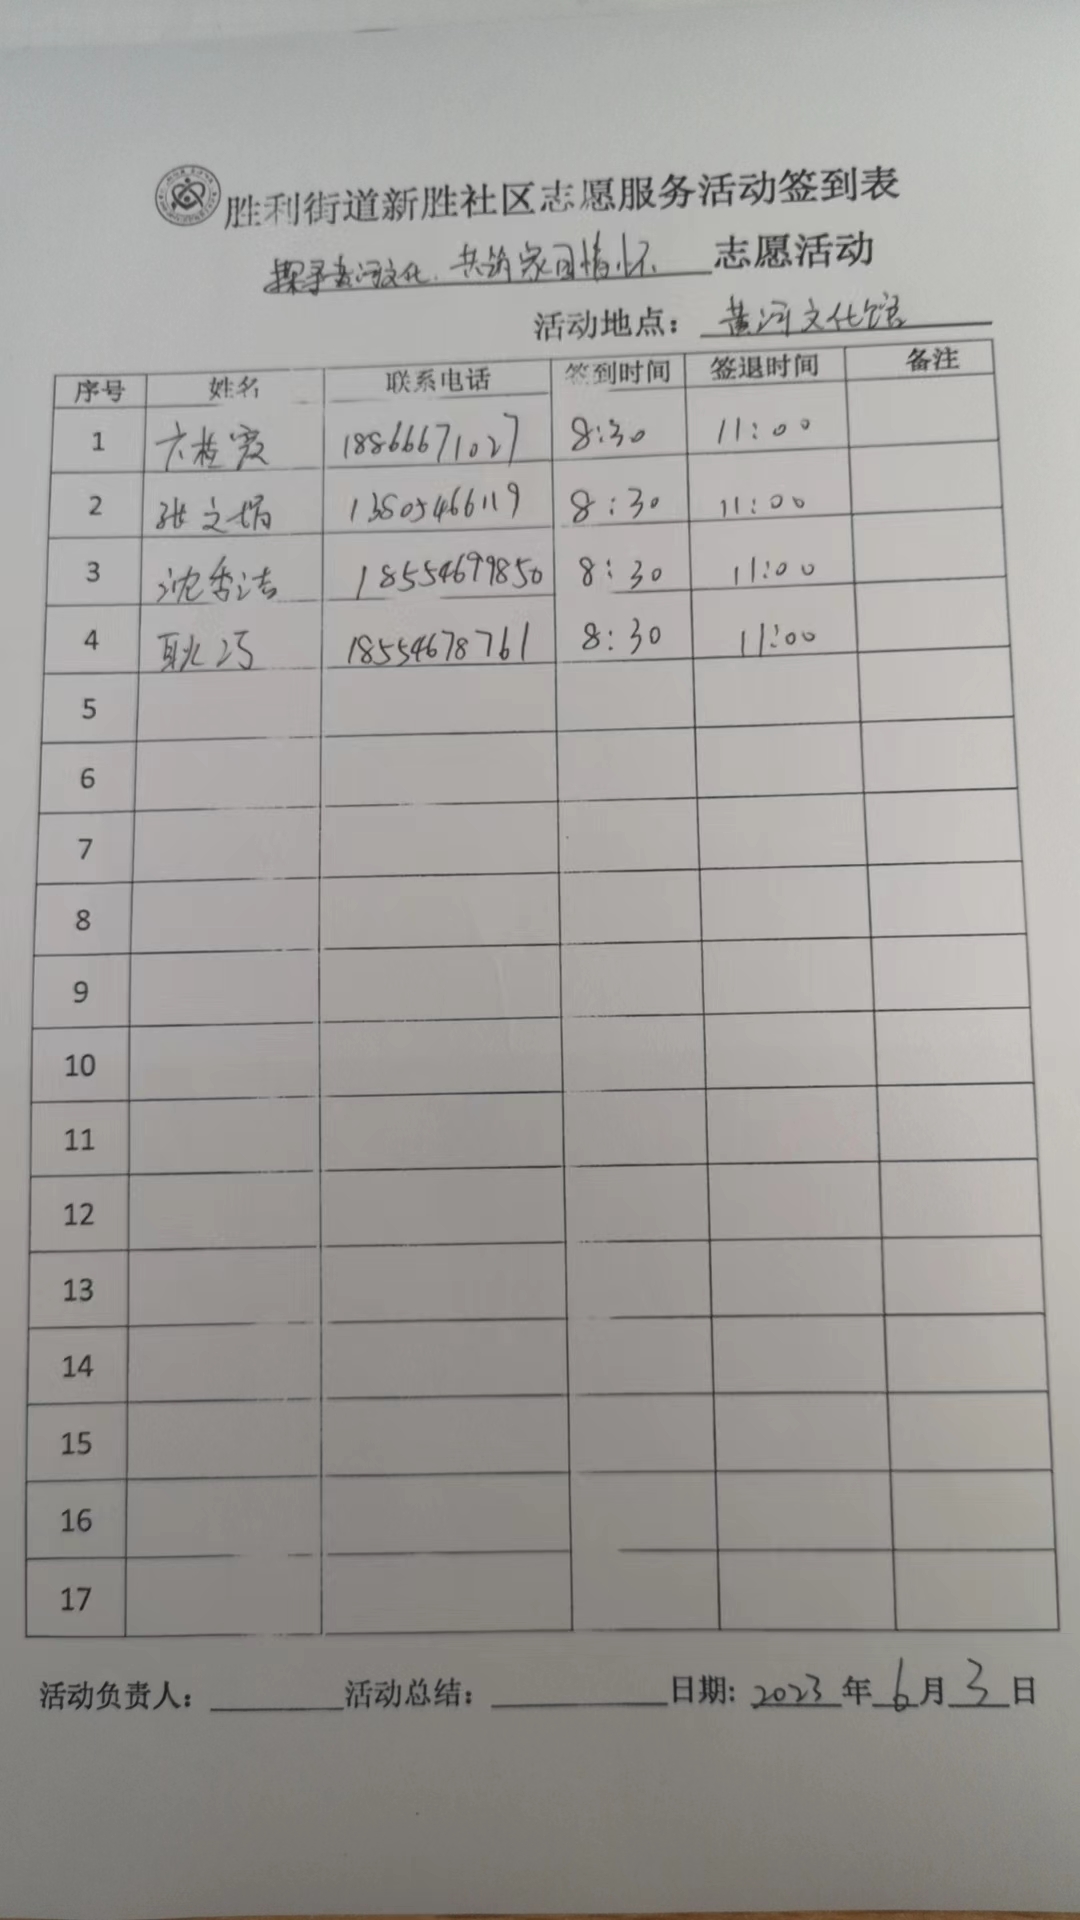 胜利街道新胜社区志愿服务活动签到表
探寻黄河文化.共筑家国情怀 志愿活动
活动地点: 黄河文化馆
序号 姓名 联系电话 签到时间 签退时间 备注
1 18866671027 8:30 11:00
2 张文娟 13805466119 8:30 11:00
3 沈秀洁 18554699850 8:30 11:00
4 耿巧 18554678761 8:30 11:00
5
6
7
8
9
10
11
12
13
14
15
16
17
活动负责人: 活动总结: 日期: 2023年6月3日